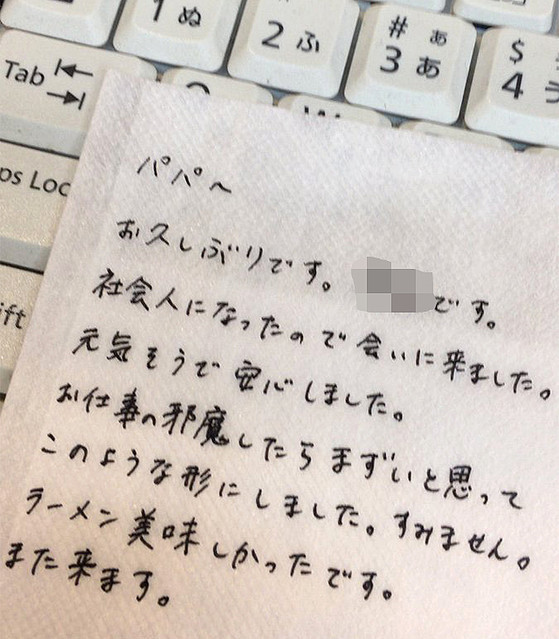 1 ぬ
2 ふ
# ぁ
3 あ
$
4
Tab
パパへ
お久しぶりです。 です。
社会人になったので会いに来ました。
元気そうで安心しました。
お仕事の邪魔したらまずいと思って
このような形にしました。すみません。
ラーメン美味しかったです。
また来ます。